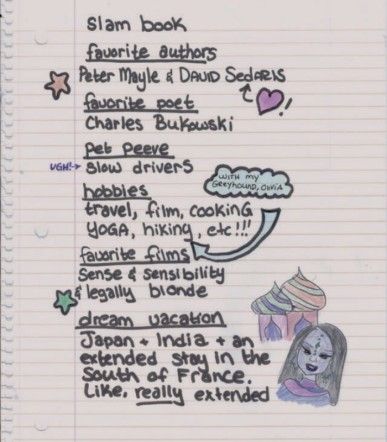 slam book
favorite authors
Peter Mayle & DAVID SEDARIS
!
favorite poet
Charles Bukowski
pet peeve
UGH!→ slow drivers
WITH MY
GREYHOUND, OLIVIA
hobbies
travel, film, cooking
YOGA, hiking, etc!!!
favorite films
Sense & sensibility
& legally blonde
dream vacation
Japan + India + an
extended stay in the
South of France.
Like, really extended